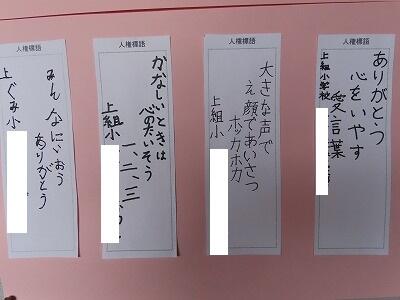 人権標語
ありがとう
心をいやす
愛言葉
上組小学校
人権標語
大きな声で
え顔であいさつ
ホッカホカ
上組小
人権標語
かなしいときは
心のたいそう
一、二、三
上組小
人権標語
みんなにいおう
ありがとう
上ぐみ小